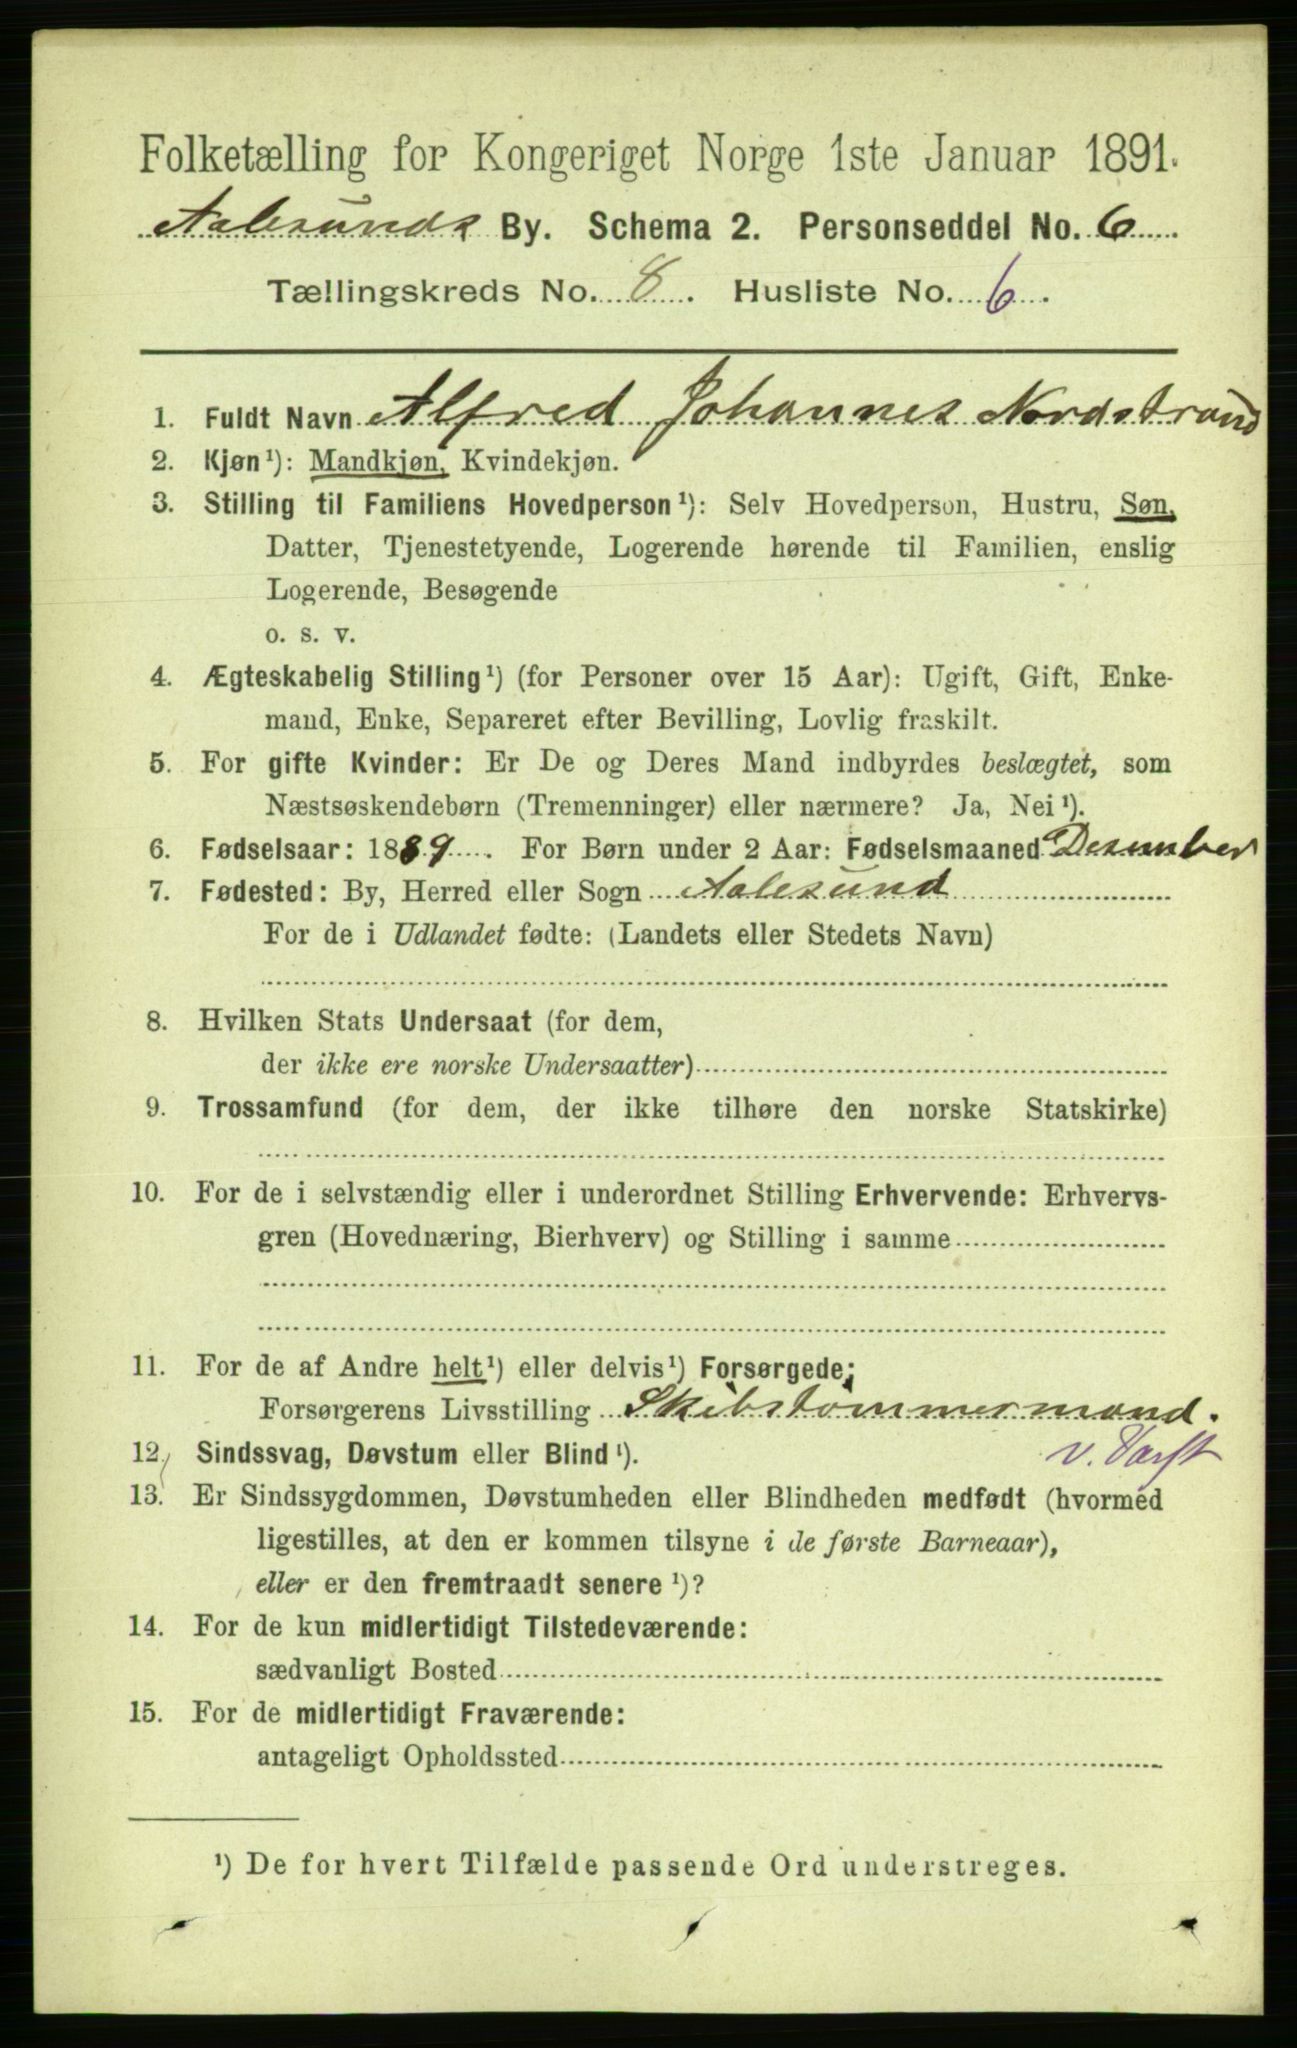 Folketælling for Kongeriget Norge 1ste Januar 1891.
Aalesunds By. Schema 2. Personseddel No. 6
Tællingskreds No. 8. Husliste No. 6.
1. Fuldt Navn Alfred Johannes Nordstrand
2. Kjøn¹): Mandkjøn, Kvindekjøn.
3. Stilling til Familiens Hovedperson¹): Selv Hovedperson, Hustru, Søn,
Datter, Tjenestetyende, Logerende hørende til Familien, enslig
Logerende, Besøgende
o. s. v.
4. Ægteskabelig Stilling¹) (for Personer over 15 Aar): Ugift, Gift, Enke-
mand, Enke, Separeret efter Bevilling, Lovlig fraskilt.
5. For gifte Kvinder: Er De og Deres Mand indbyrdes beslægtet, som
Næstsøskendebørn (Tremenninger) eller nærmere? Ja, Nei¹).
6. Fødselsaar: 1889. For Børn under 2 Aar: Fødselsmaaned Desember
7. Fødested: By, Herred eller Sogn Aalesund
For de i Udlandet fødte: (Landets eller Stedets Navn)
8. Hvilken Stats Undersaat (for dem,
der ikke ere norske Undersaatter)
9. Trossamfund (for dem, der ikke tilhøre den norske Statskirke)
10. For de i selvstændig eller i underordnet Stilling Erhvervende: Erhvervs-
gren (Hovednæring, Bierhverv) og Stilling i samme
11. For de af Andre helt¹) eller delvis¹) Forsørgede:
Forsørgerens Livsstilling Skibstømmermand.
v. Varft
12. Sindssvag, Døvstum eller Blind¹).
13. Er Sindssygdommen, Døvstumheden eller Blindheden medfødt (hvormed
ligestilles, at den er kommen tilsyne i de første Barneaar),
eller er den fremtraadt senere¹)?
14. For de kun midlertidigt Tilstedeværende:
sædvanligt Bosted
15. For de midlertidigt Fraværende:
antageligt Opholdssted
¹) De for hvert Tilfælde passende Ord understreges.